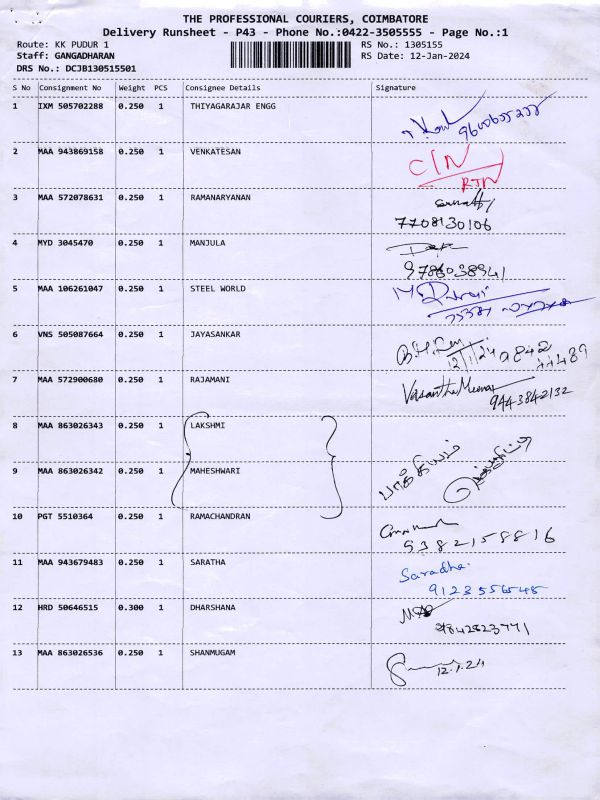 THE PROFESSIONAL COURIERS, COIMBATORE
Delivery Runsheet - P43 - Phone No.:0422-3505555 - Page No.:1
Route: KK PUDUR 1 RS No.: 1305155
Staff: GANGADHARAN RS Date: 12-Jan-2024
DRS No.: DCJB130515501
S No Consignment No Weight PCS Consignee Details Signature
1 IXM 505702288 0.250 1 THIYAGARAJAR ENGG
2 MAA 943869158 0.250 1 VENKATESAN C/N
RTN
3 MAA 572078631 0.250 1 RAMANARYANAN
7708130106
4 MYD 3045470 0.250 1 MANJULA
9786038941
5 MAA 106261047 0.250 1 STEEL WORLD
6 VNS 505087664 0.250 1 JAYASANKAR
12/1/24 9842
44489
7 MAA 572900680 0.250 1 RAJAMANI Vasantha Meena
9443842132
8 MAA 863026343 0.250 1 LAKSHMI
9 MAA 863026342 0.250 1 MAHESHWARI
10 PGT 5510364 0.250 1 RAMACHANDRAN
9382158816
11 MAA 943679483 0.250 1 SARATHA Saradha
9123556545
12 HRD 50646515 0.300 1 DHARSHANA
9842823771
13 MAA 863026536 0.250 1 SHANMUGAM
12.1.24